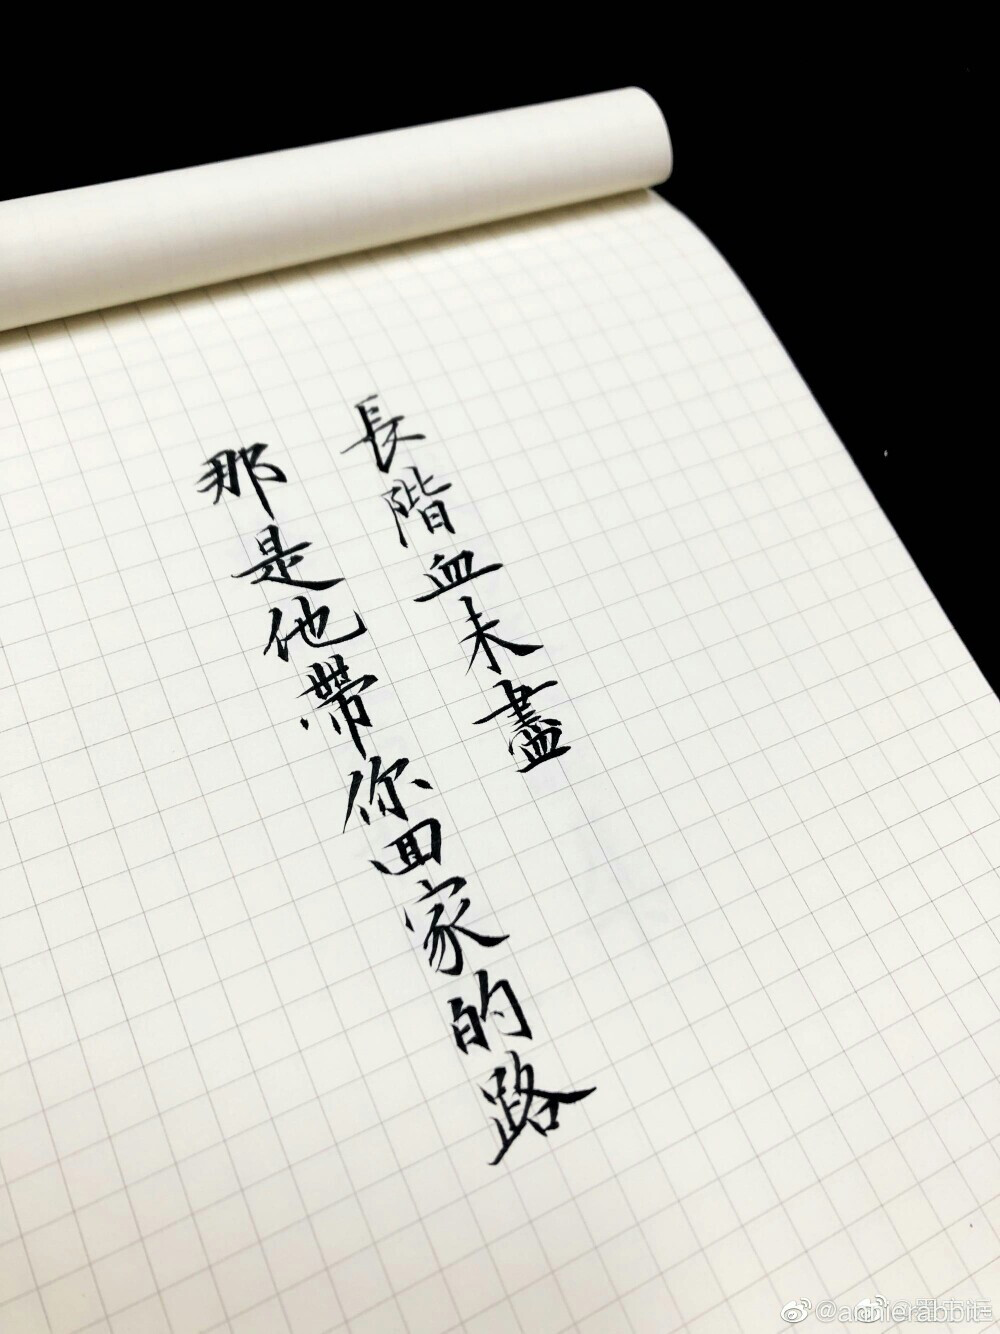 長階血未盡
那是他帶你回家的路
@annierabbit